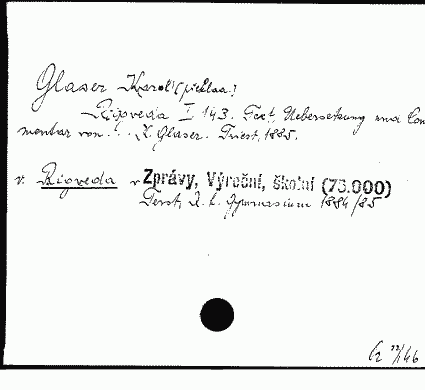 Glaser Karol (překlad.)
Rigveda I 143. Text, Uebersetzung und Com
mentar von . . . K. Glaser. Triest, 1885.
v. Rigveda v Zprávy, Výroční, školní (75.000)
Terst, K. k. Gymnasium 1884/85